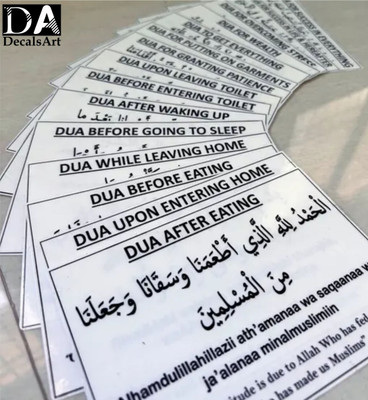 DA
DecalsArt
DUA FOR WEALTH
DUA FOR PUTTING ON GARMENTS
DUA FOR GRANTING PATIENCE
DUA UPON LEAVING TOILET
DUA BEFORE ENTERING TOILET
DUA AFTER WAKING UP
DUA BEFORE GOING TO SLEEP
DUA WHILE LEAVING HOME
DUA BEFORE EATING
DUA UPON ENTERING HOME
DUA AFTER EATING
الْحَمْدُ لِلَّهِ الَّذِي أَطْعَمَنَا وَسَقَانَا وَجَعَلَنَا
مِنَ الْمُسْلِمِينَ
Alhamdulillahillazii ath'amanaa wa saqaanaa wa
ja'alanaa minalmusliimiin
is due to Allah Who has fed
has made us Muslims"